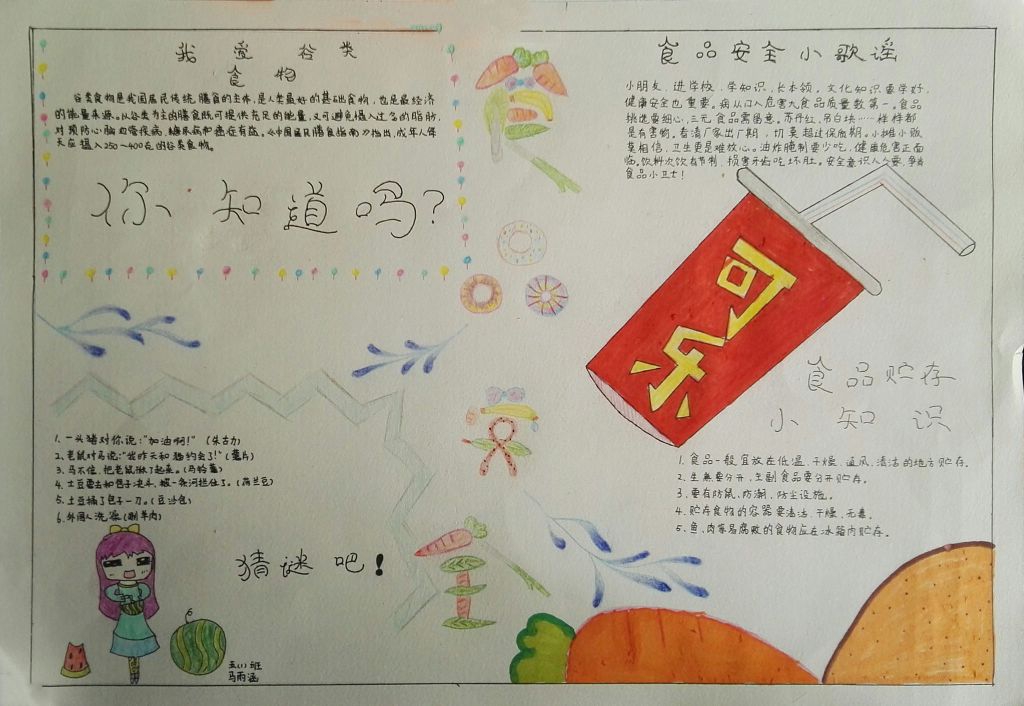 我爱谷类
食物
谷类食物是我国居民传统膳食的主体，是人类最好的基础食物，也是最经济
的能量来源。从谷类为主的膳食既可提供充足的能量，又可避免摄入过多的脂肪，
对预防心脑血管疾病，糖尿病和癌症有益。《中国居民膳食指南》指出，成年人每
天应摄入250～400克的谷类食物。
你知道吗？
1. 一头猪对你说："加油啊！"（朱古力）
2. 老鼠对马说："我昨天和猫约会了！"（薯片）
3. 马不信，把老鼠揪了起来。（马铃薯）
4. 土豆要去和包子决斗，被一条河拦住了。（荷兰豆）
5. 土豆捅了包子一刀。（豆沙包）
6. 外国人洗澡（涮羊肉）
猜谜吧！
五(1)班
马雨涵
食品安全小歌谣
小朋友，进学校，学知识，长本领。文化知识要学好，
健康安全也重要。病从口入危害大食品质量数第一。食品
挑选要细心，三元食品需留意。苏丹红、吊白块……样样都
是有害物。看清厂家出厂期，切莫超过保质期。小摊小贩
莫相信，卫生更是难放心。油炸腌制要少吃，健康危害正面
临。饮料次饮有节制，损害牙齿吃坏肚。安全意识人人要，争当
食品小卫士！
可乐
食品贮存
小知识
1. 食品一般宜放在低温、干燥、通风、清洁的地方贮存。
2. 生熟要分开，主副食品要分开贮存。
3. 要有防鼠、防潮、防尘设施。
4. 贮存食物的容器要清洁、干燥、无毒。
5. 鱼、肉等易腐败的食物应在冰箱内贮存。